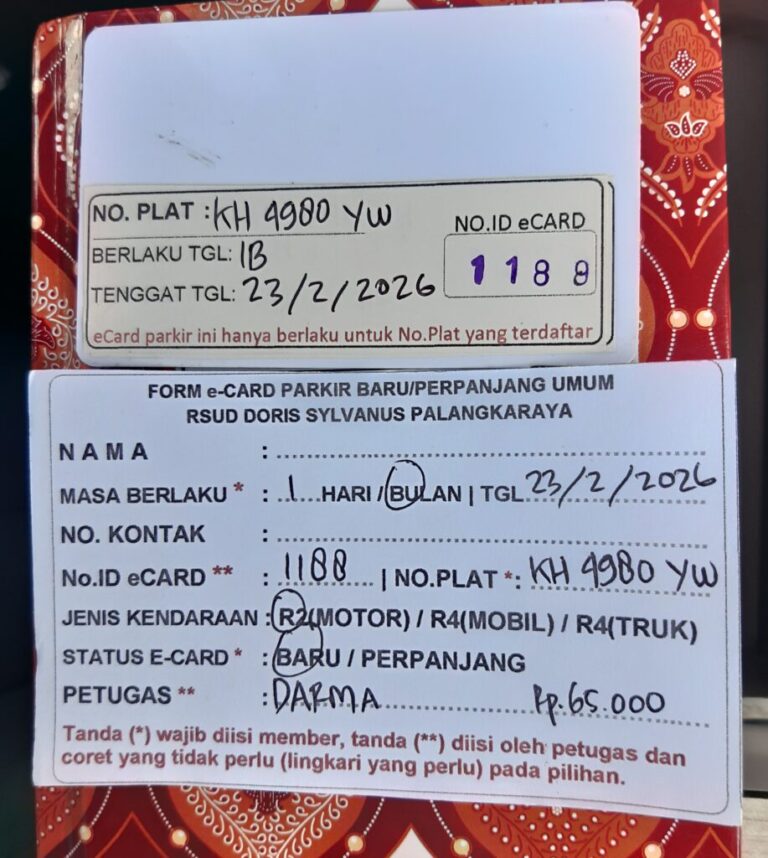 NO. PLAT : KH 4980 YW
NO.ID eCARD
BERLAKU TGL: 1B
1188
TENGGAT TGL: 23/2/2026
eCard parkir ini hanya berlaku untuk No.Plat yang terdaftar
FORM e-CARD PARKIR BARU/PERPANJANG UMUM
RSUD DORIS SYLVANUS PALANGKARAYA
NAMA :
MASA BERLAKU * : 1 HARI / BULAN | TGL 23/2/2026
NO. KONTAK :
No.ID eCARD ** : 1188 | NO.PLAT *: KH 4980 YW
JENIS KENDARAAN : R2(MOTOR) / R4(MOBIL) / R4(TRUK)
STATUS E-CARD * : BARU / PERPANJANG
PETUGAS ** : DARMA Rp.65.000
Tanda (*) wajib diisi member, tanda (**) diisi oleh petugas dan
coret yang tidak perlu (lingkari yang perlu) pada pilihan.